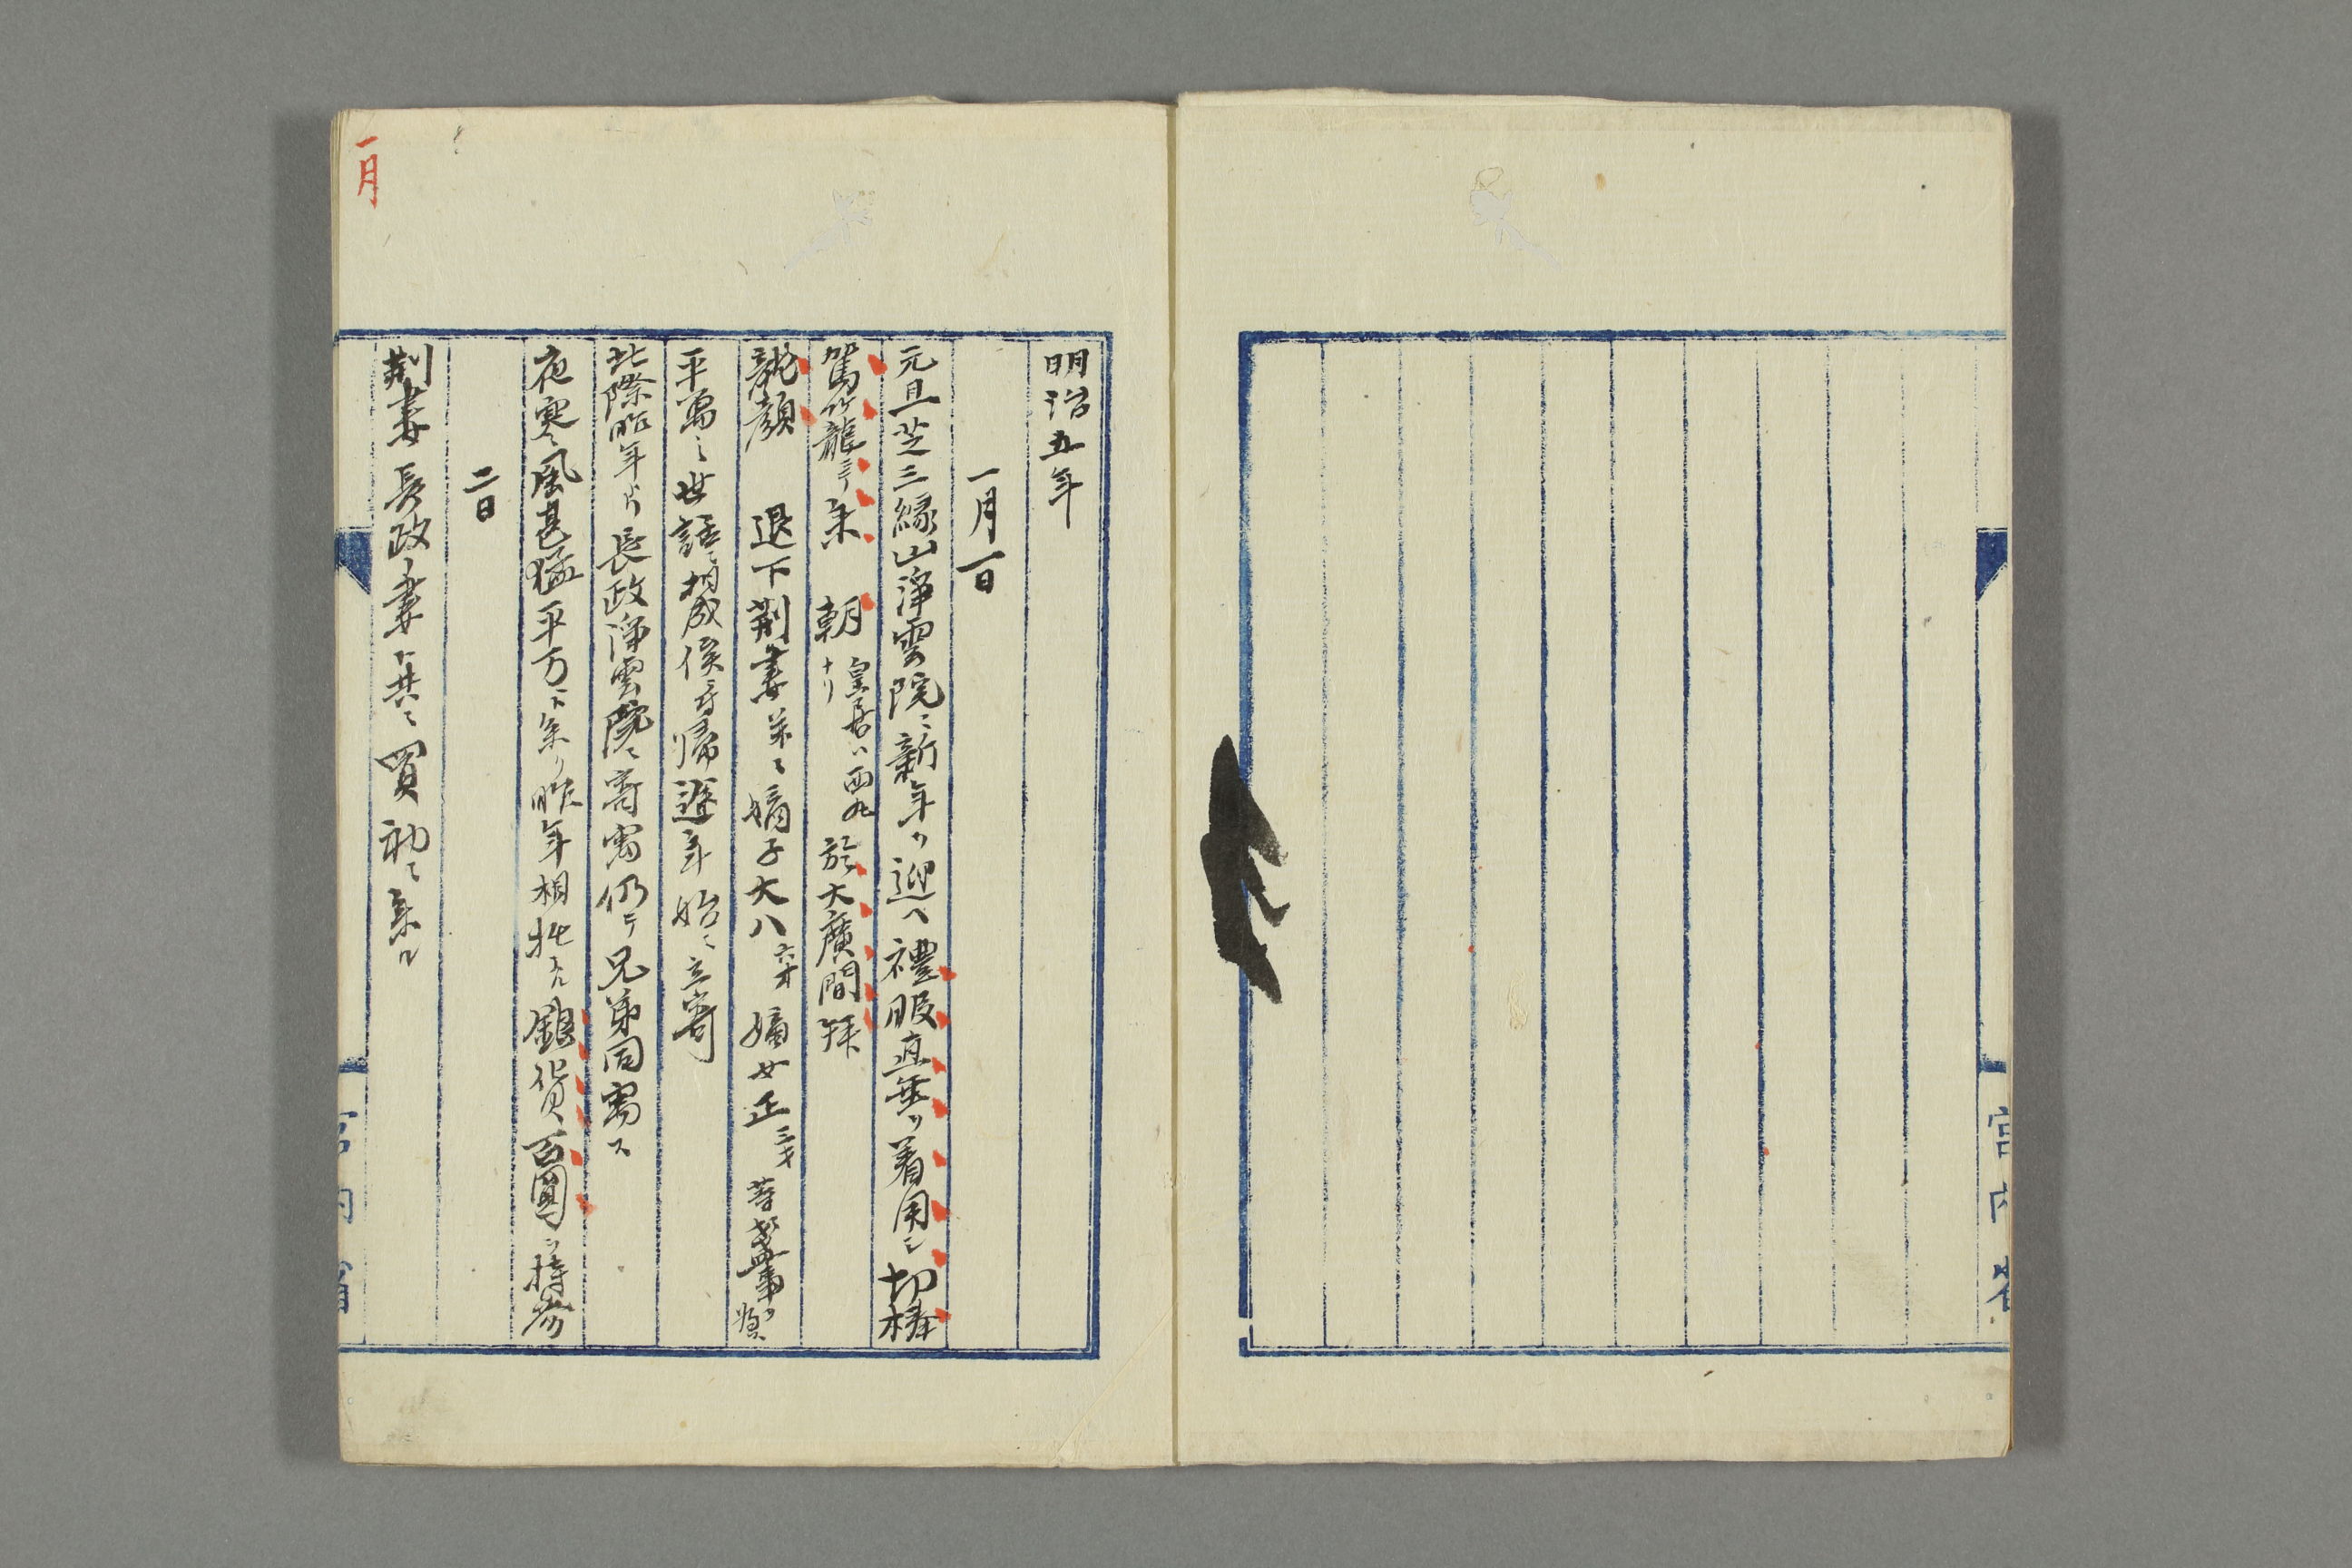 宮内省
明治五年
一月一日
元旦芝三縁山浄雲院ニ新年ヲ迎ヘ禮服直垂ヲ着用シ切棒
駕籠ニテ参 朝 皇居ハ西丸ナリ 於大廣間拝
龍顔 退下荆妻并ニ嫡子大八六才嫡女正三才等
平萬之世話ニ相成候ニ付帰途年始ニ立寄
此際昨年ヨリ長政浄雲院ニ寄寓仍テ兄弟同寓ス
夜寒風甚猛平万下条リ昨年相托スル銀貨百圓ヲ持参
二日
荆妻長政妻ト共ニ買初ニ来ル
一月
宮内省